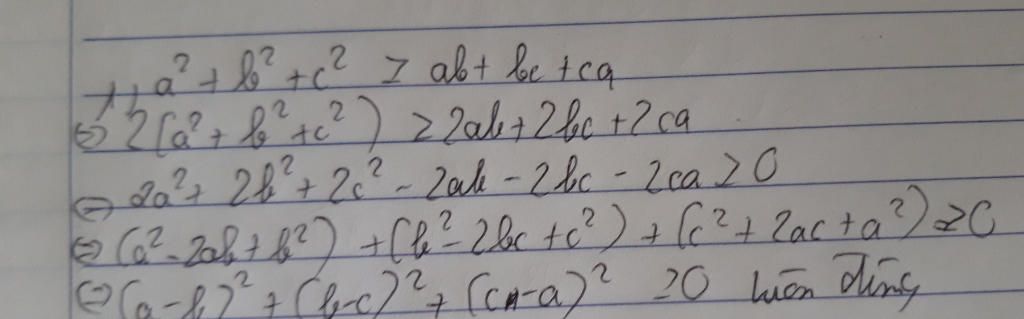 1, a² + b² + c² ≥ ab + bc + ca
⇔ 2(a² + b² + c²) ≥ 2ab + 2bc + 2ca
⇔ 2a² + 2b² + 2c² - 2ab - 2bc - 2ca ≥ 0
⇔ (a² - 2ab + b²) + (b² - 2bc + c²) + (c² + 2ac + a²) ≥ 0
⇔ (a - b)² + (b - c)² + (c - a)² ≥ 0 luôn đúng